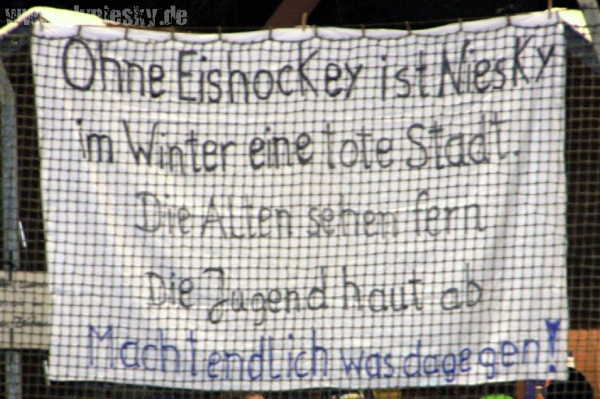 Ohne Eishockey ist Niesky
im Winter eine tote Stadt.
Die Alten sehen fern
Die Jugend haut ab
Macht endlich was dagegen!